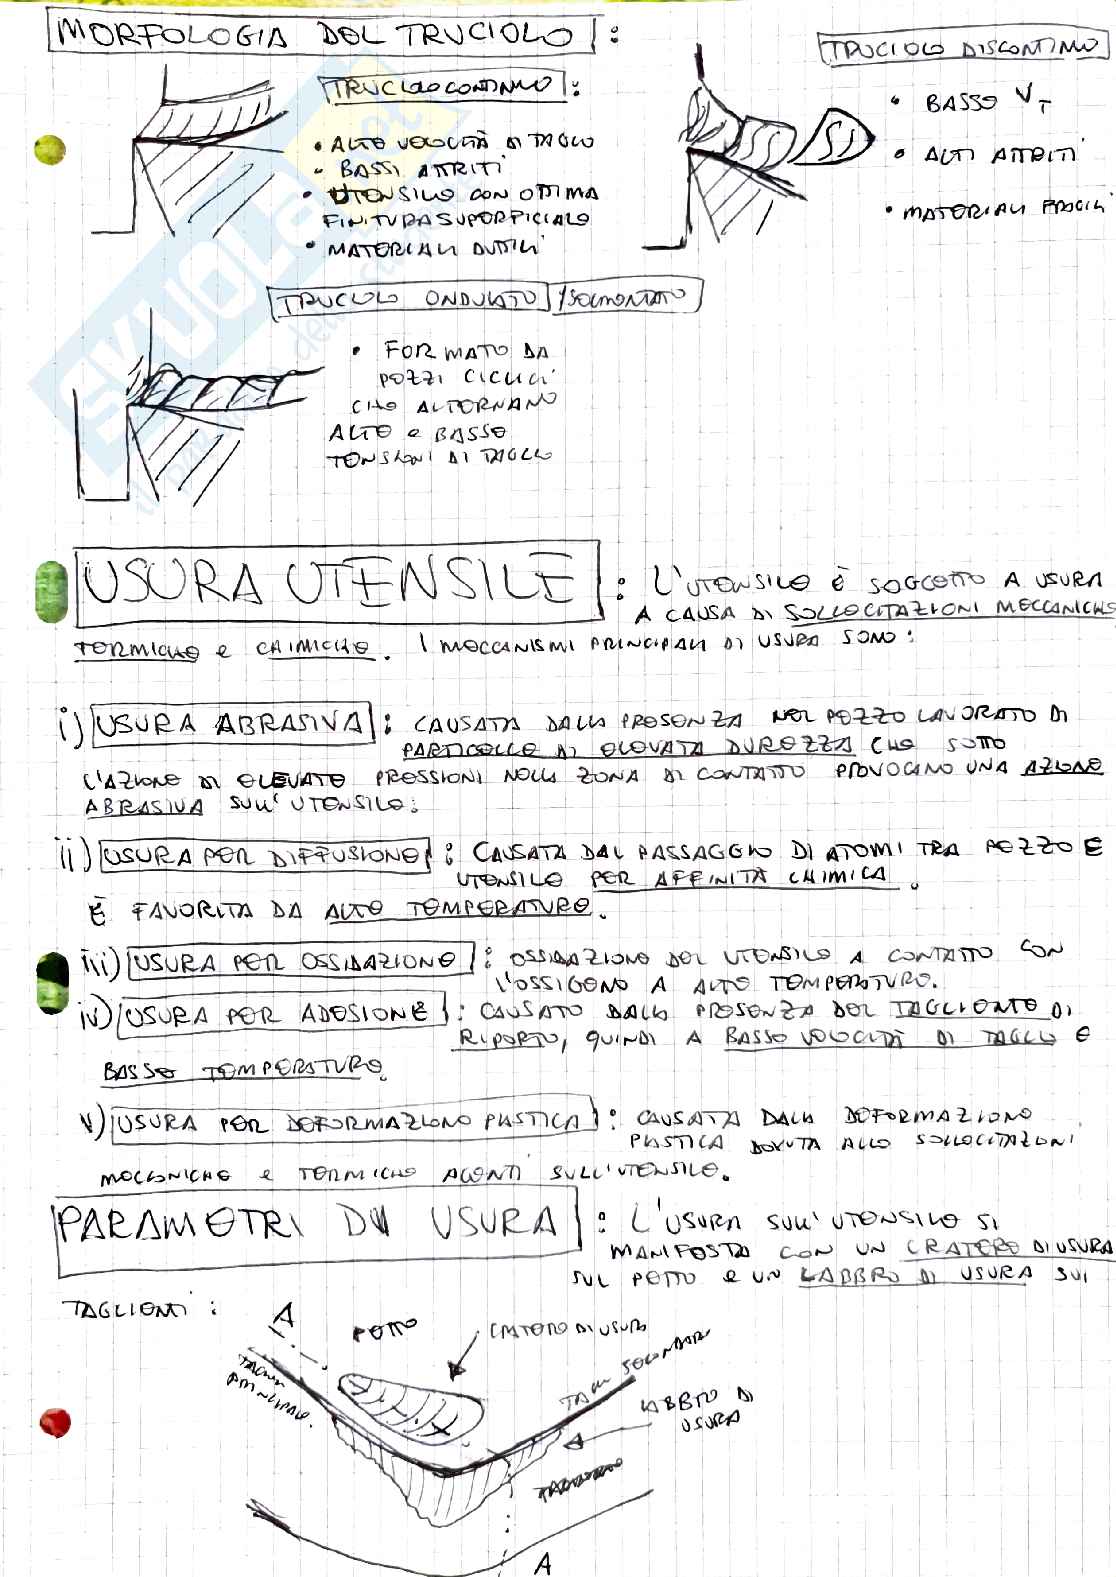 MORFOLOGIA DEL TRUCIOLO :
TRUCIOLO DISCONTINUO
TRUCIOLO CONTINUO :
• BASSO VT
• ALTE VELOCITÀ DI TAGLIO
• BASSI ATTRITI
• ALTI ATTRITI
• UTENSILE CON OTTIMA
FINITURA SUPERFICIALE
• MATERIALI FRAGILI
• MATERIALI DUTTILI
TRUCIOLO ONDULATO /SEGMENTATO
• FORMATO DA
PEZZI CICLICI
CHE ALTERNANO
ALTE e BASSE
TENSIONI DI TAGLIO
USURA UTENSILE : L'UTENSILE È SOGGETTO A USURA
A CAUSA DI SOLLECITAZIONI MECCANICHE
TERMICHE e CHIMICHE. I MECCANISMI PRINCIPALI DI USURA SONO:
i) USURA ABRASIVA : CAUSATA DALLA PRESENZA NEL PEZZO LAVORATO DI
PARTICELLE DI ELEVATA DUREZZA CHE SOTTO
L'AZIONE DI ELEVATE PRESSIONI NELLA ZONA DI CONTATTO PROVOCANO UNA AZIONE
ABRASIVA SULL'UTENSILE.
ii) USURA PER DIFFUSIONE : CAUSATA DAL PASSAGGIO DI ATOMI TRA PEZZO E
UTENSILE PER AFFINITÀ CHIMICA.
È FAVORITA DA ALTE TEMPERATURE.
iii) USURA PER OSSIDAZIONE : OSSIDAZIONE DEL UTENSILE A CONTATTO CON
L'OSSIGENO A ALTE TEMPERATURE.
iv) USURA PER ADESIONE : CAUSATO DALLA PRESENZA DEL TAGLIENTE DI
RIPORTO, QUINDI A BASSE VELOCITÀ DI TAGLIO E
BASSE TEMPERATURE.
v) USURA PER DEFORMAZIONE PLASTICA : CAUSATA DALLA DEFORMAZIONE
PLASTICA DOVUTA ALLE SOLLECITAZIONI
MECCANICHE e TERMICHE AGENTI SULL'UTENSILE.
PARAMETRI DI USURA : L'USURA SULL'UTENSILE SI
MANIFESTA CON UN CRATERE DI USURA
SUL PETTO e UN LABBRO DI USURA SUI
TAGLIENTI :
A
PETTO
CRATERE DI USURA
TAGLI SECONDARI
TAGLI PRINCIPALE.
LABBRO DI
USURA
A